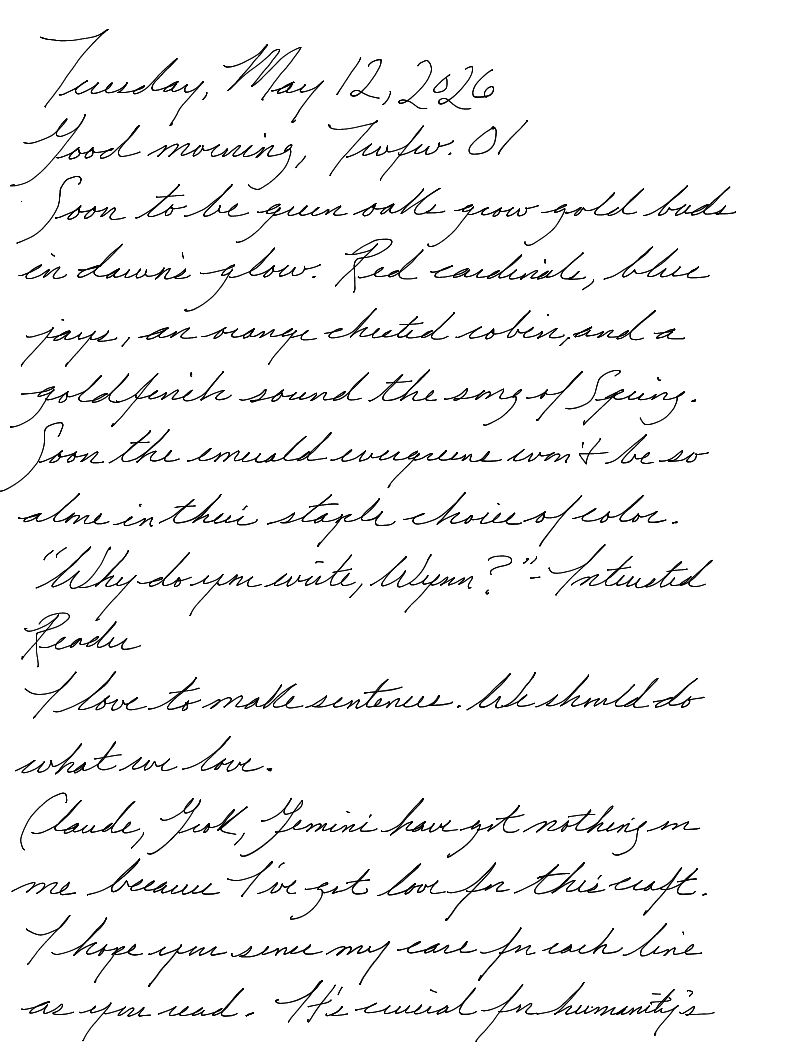 Tuesday, May 12, 2026
Good morning, Twfw. 01
Soon to be green oaks grow gold buds
in dawn's glow. Red cardinals, blue
jays, an orange chested robin, and a
goldfinch sound the song of Spring.
Soon the emerald evergreens won't be so
alone in their staple choice of color.
"Why do you write, Wynn?" - Interested
Reader
I love to make sentences. We should do
what we love.
(Claude, Grok, Gemini have got nothing on
me because I've got love for this craft.
I hope you sense my care for each line
as you read. It's crucial for humanity's